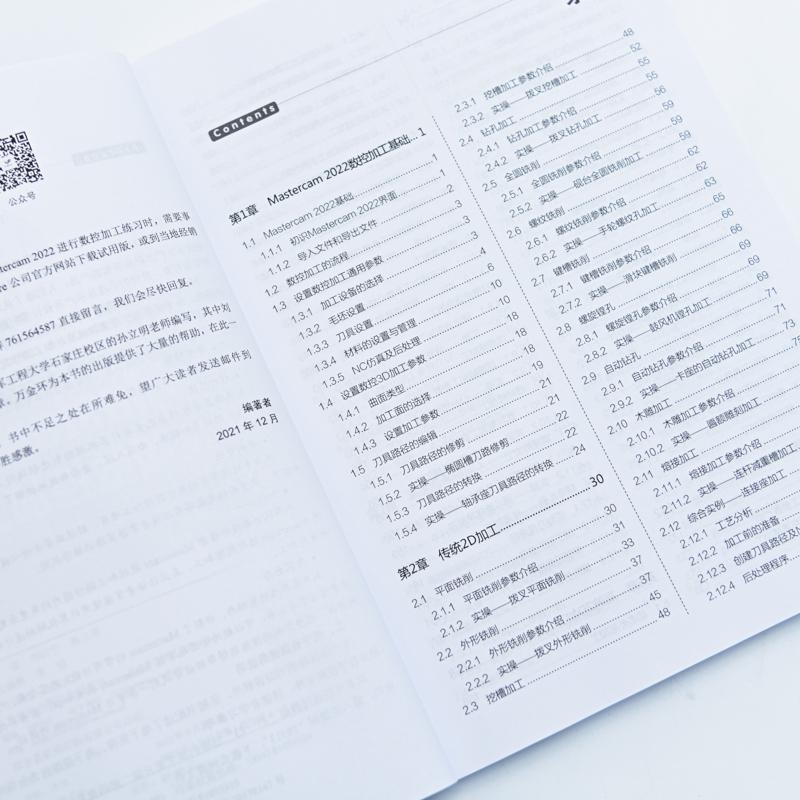 公众号
stercam 2022 进行数控加工练习时，需要事
re 公司官方网站下载试用版，或到当地经销
761564587 直接留言，我们会尽快回复。
工程大学石家庄校区的孙立明老师编写，其中刘
万金环为本书的出版提供了大量的帮助，在此一
书中不足之处在所难免，望广大读者发送邮件到
胜感激。
编著者
2021 年 12 月
Contents
第1章 Mastercam 2022数控加工基础...1
1.1 Mastercam 2022基础...1
1.1.1 初识Mastercam 2022界面...1
1.1.2 导入文件和导出文件...2
1.2 数控加工的流程...3
1.3 设置数控加工通用参数...3
1.3.1 加工设备的选择...3
1.3.2 毛坯设置...4
1.3.3 刀具设置...6
1.3.4 材料的设置与管理...10
1.3.5 NC仿真及后处理...10
1.4 设置数控3D加工参数...18
1.4.1 曲面类型...18
1.4.2 加工面的选择...18
1.4.3 设置加工参数...19
1.5 刀具路径的编辑...21
1.5.1 刀具路径的修剪...21
1.5.2 实操——椭圆槽刀路修剪...22
1.5.3 刀具路径的转换...22
1.5.4 实操——轴承座刀具路径的转换...24
第2章 传统2D加工...30
2.1 平面铣削...30
2.1.1 平面铣削参数介绍...31
2.1.2 实操——拨叉平面铣削...33
2.2 外形铣削...37
2.2.1 外形铣削参数介绍...37
2.2.2 实操——拨叉外形铣削...45
2.3 挖槽加工...48
2.3.1 挖槽加工参数介绍...48
2.3.2 实操——拨叉挖槽加工...52
2.4 钻孔加工...55
2.4.1 钻孔加工参数介绍...55
2.4.2 实操——拨叉钻孔加工...56
2.5 全圆铣削...59
2.5.1 全圆铣削参数介绍...59
2.5.2 实操——砚台全圆铣削加工...59
2.6 螺纹铣削...62
2.6.1 螺纹铣削参数介绍...62
2.6.2 实操——手轮螺纹孔加工...63
2.7 键槽铣削...65
2.7.1 键槽铣削参数介绍...66
2.7.2 实操——滑块键槽铣削...66
2.8 螺旋镗孔...69
2.8.1 螺旋镗孔参数介绍...69
2.8.2 实操——鼓风机镗孔加工...69
2.9 自动钻孔...71
2.9.1 自动钻孔参数介绍...71
2.9.2 实操——卡座的自动钻孔加工...73
2.10 木雕加工
2.10.1 木雕加工参数介绍
2.10.2 实操——匾额雕刻加工
2.11 熔接加工
2.11.1 熔接加工参数介绍
2.11.2 实操——连杆减重槽加工
2.12 综合实例——连接座加工
2.12.1 工艺分析
2.12.2 加工前的准备
2.12.3 创建刀具路径及
2.12.4 后处理程序